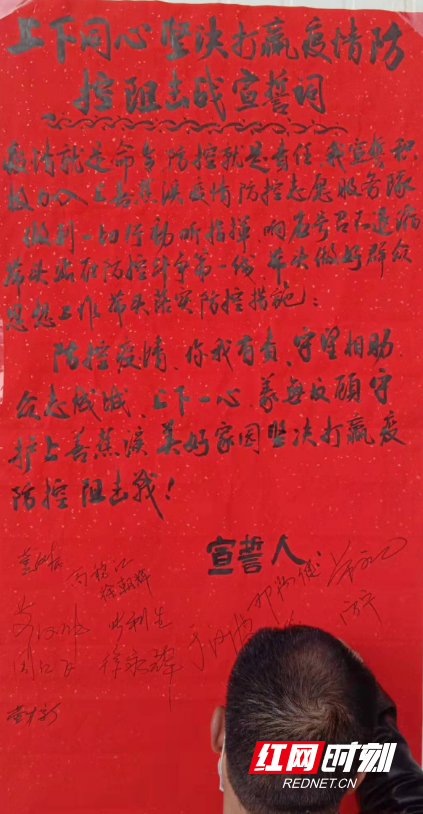 上下同心坚决打赢疫情防
控阻击战宣誓词
疫情就是命令防控就是责任我宣誓积
极加入上善蕉溪疫情防控志愿服务队
做到一切行动听指挥、响应号召不退缩
带头站在防控斗争第一线 带头做好群众
思想工作 带头落实防控措施：
防控疫情、你我有责、守望相助
众志成城、上下一心、义无反顾守
护上善蕉溪美好家园坚决打赢疫
防控阻击战！
宣誓人：
红网时刻
REDNET.CN